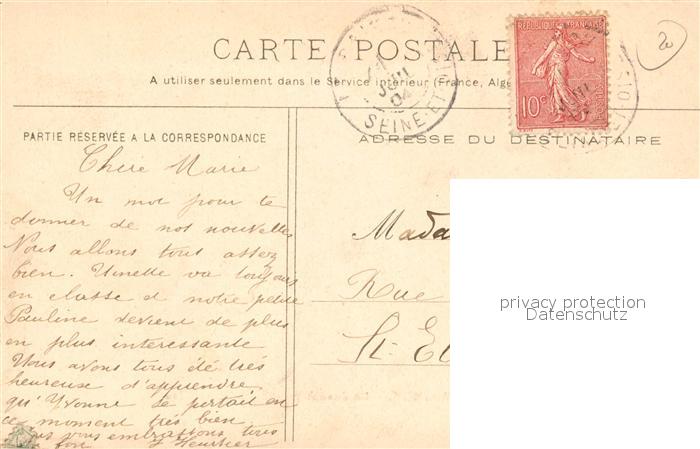 CARTE POSTALE
A utiliser seulement dans le Service intérieur (France, Algé
REPUBLIQUE FRANÇAISE
10c
JUIL
04
SEINE-ET-OISE
20
PARTIE RÉSERVÉE A LA CORRESPONDANCE
ADRESSE DU DESTINATAIRE
Chère Marie
Un mot pour te
donner de nos nouvelles
Nous allons tous assez
bien. va toujours
en classe et notre petite
Pauline devient de plus
en plus interessante
Nous avons tous été très
heureuse d'apprendre
qu'Yvonne se portait en
ce moment très bien
vous embrassons tous
bon
Mada
Rue
St. Et
privacy protection
Datenschutz